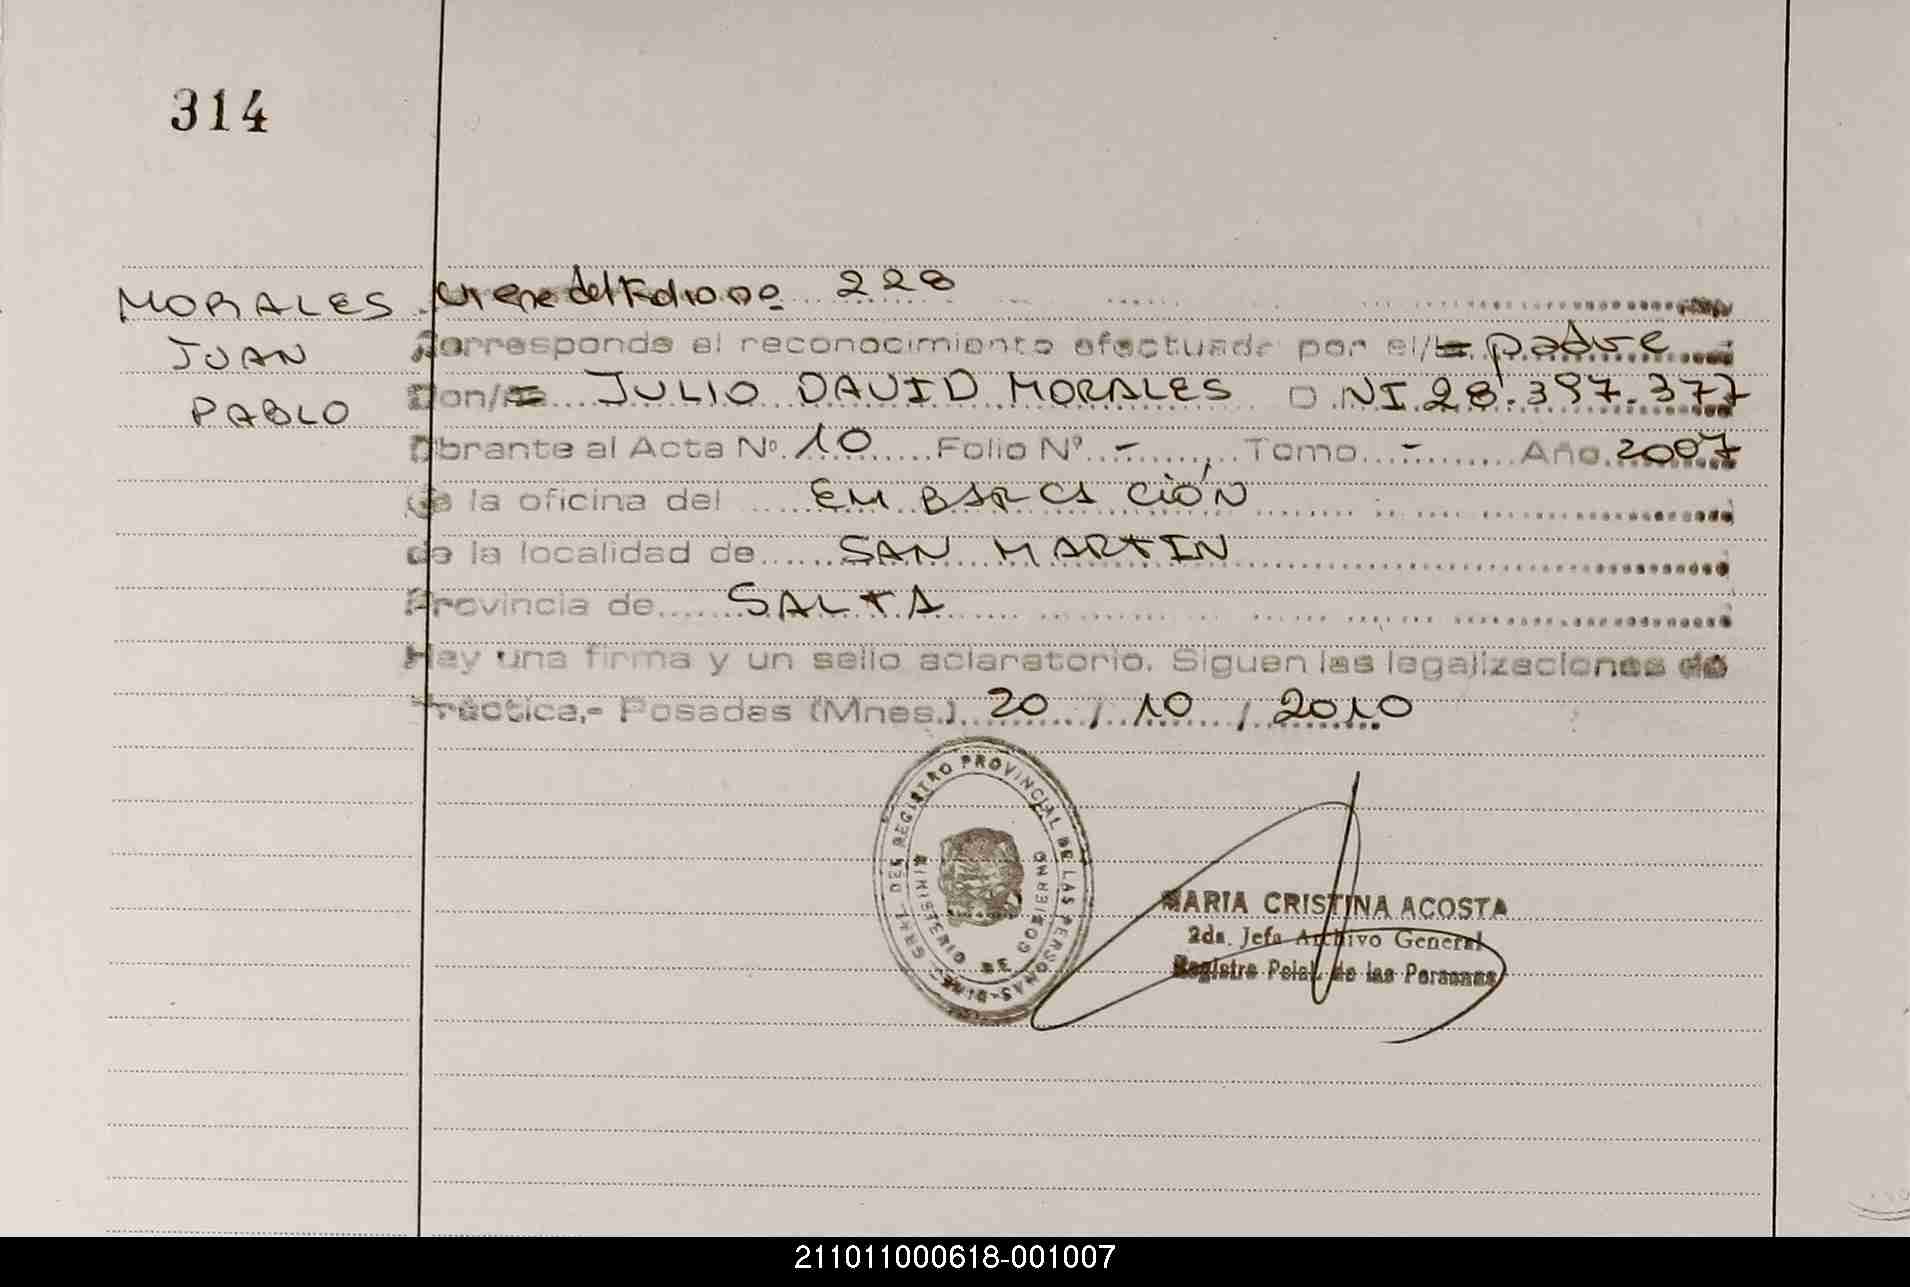 314
MORALES
JUAN
PABLO
Viene del Folio nº 228
Corresponde al reconocimiento efectuado por el/la padre
Don/ña JULIO DAVID MORALES D.NI.28.397.377
Obrante al Acta Nº 10 Folio Nº - Tomo - Año 2007
de la oficina del EMBARCACIÓN
de la localidad de SAN MARTIN
Provincia de SALTA
Hay una firma y un sello aclaratorio. Siguen las legalizaciones de
Práctica,- Posadas (Mnes.) 20 / 10 / 2010
GRAL. DEL REGISTRO PROVINCIAL DE LAS PERSONAS
MINISTERIO DE GOBIERNO
MARIA CRISTINA ACOSTA
2da. Jefa Archivo General
Registro Pcial. de las Personas
211011000618-001007